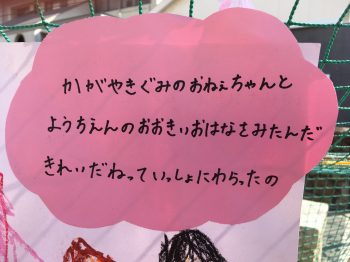 かがやきぐみのおねぇちゃんと
ようちえんのおおきぃおはなをみたんだ
きれいだねっていっしょにわらったの